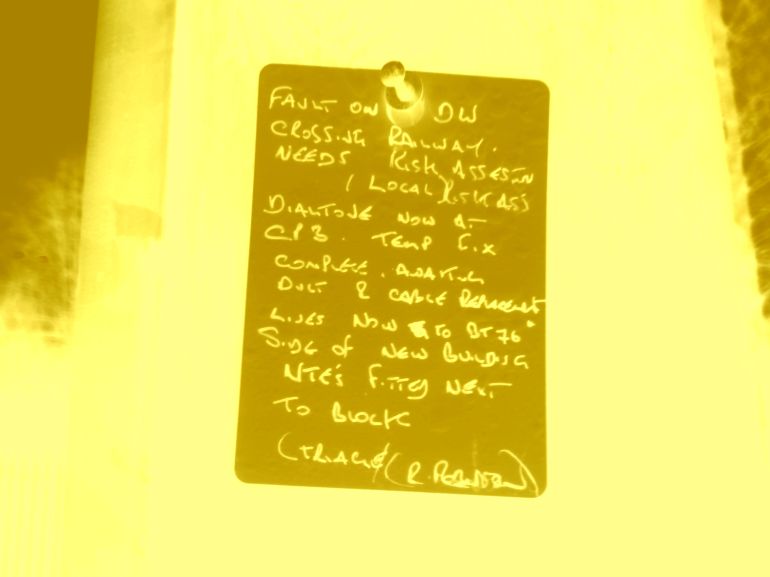 FAULT ON DW
CROSSING RAILWAY.
NEEDS RISK ASSESSIN
/ LOCAL RISK ASS
DIALTONE NOW AT
CP3. TEMP FIX
COMPLETE. AWAITING
DUCT & CABLE REPLACEMENT
LINES NOW TO BT76
SIDE OF NEW BUILDING
NTE'S FITTED NEXT
TO BLOCK
(TRIAGE) (R.